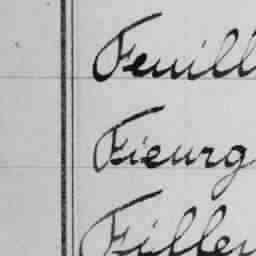 Feuill
Fieurg
Filleu